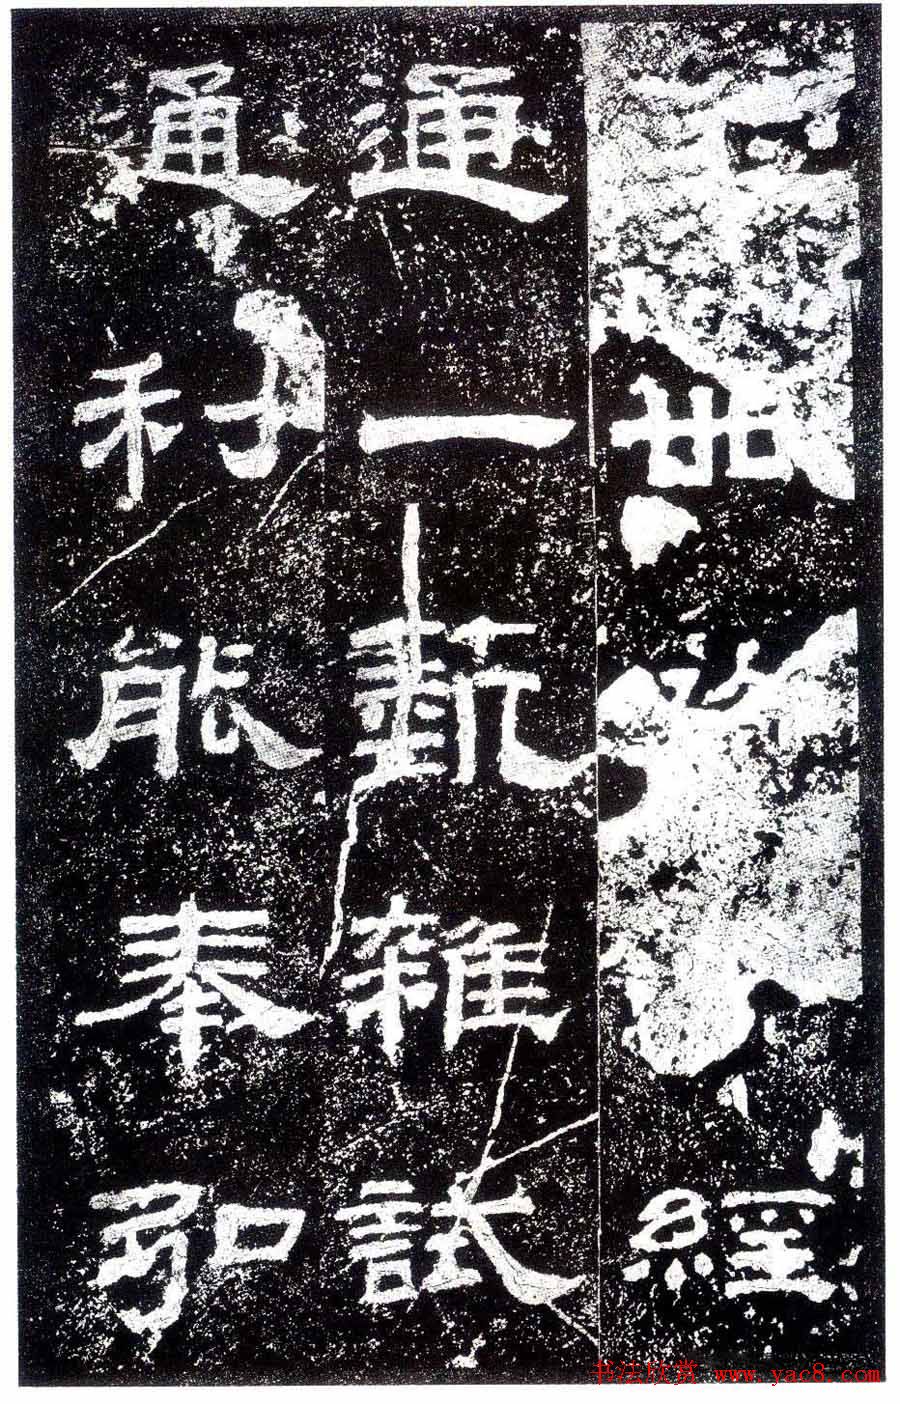 卌經
通一藝雜試
通利能奉弘
书法欣赏 www.yac8.com